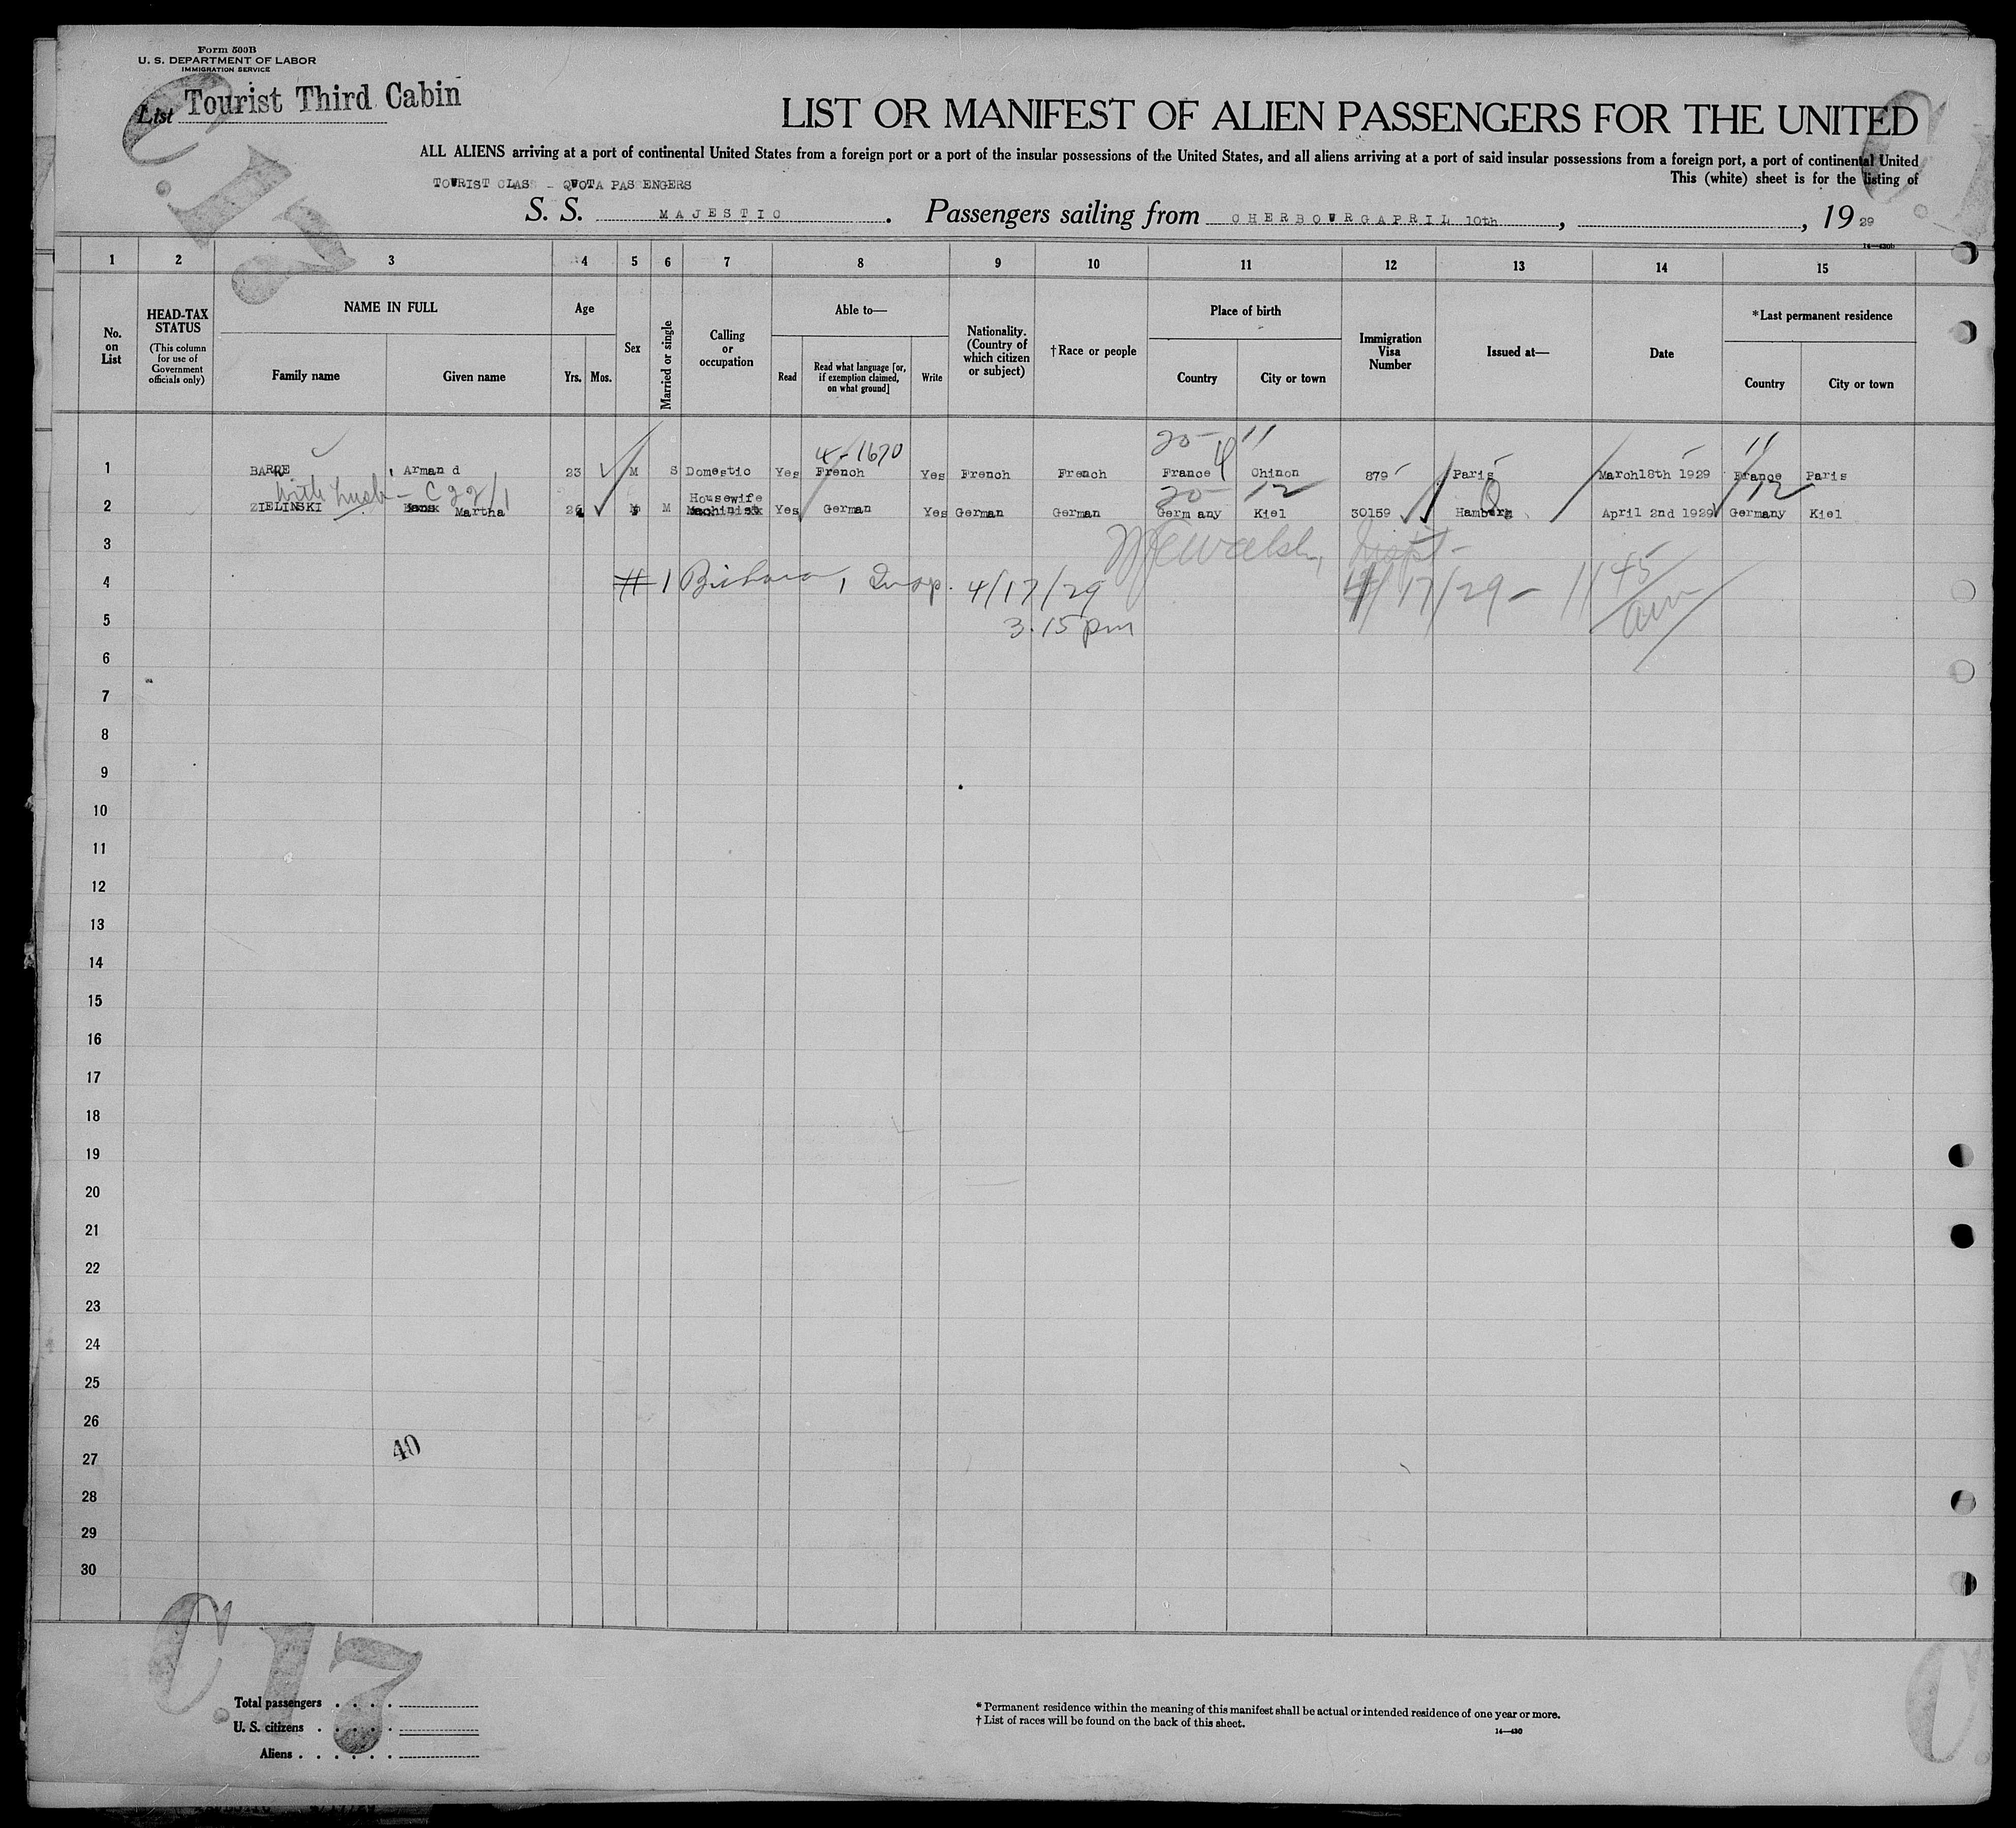 Form 500B
U. S. DEPARTMENT OF LABOR
IMMIGRATION SERVICE
List Tourist Third Cabin
C.17
LIST OR MANIFEST OF ALIEN PASSENGERS FOR THE UNITED
ALL ALIENS arriving at a port of continental United States from a foreign port or a port of the insular possessions of the United States, and all aliens arriving at a port of said insular possessions from a foreign port, a port of continental United
This (white) sheet is for the listing of
TOURIST CLASS - QUOTA PASSENGERS
S. S. MAJESTIC. Passengers sailing from CHERBOURG APRIL 10th, , 19 29
14—430b
1 2 3 4 5 6 7 8 9 10 11 12 13 14 15
No. on List
HEAD-TAX STATUS (This column for use of Government officials only)
NAME IN FULL
Family name Given name
Age
Yrs. Mos.
Sex
Married or single
Calling or occupation
Able to—
Read Read what language [or, if exemption claimed, on what ground] Write
Nationality. (Country of which citizen or subject)
†Race or people
Place of birth
Country City or town
Immigration Visa Number
Issued at—
Date
*Last permanent residence
Country City or town
4-1670 20 11 11
1 BARRE Armand 23 M S Domestic Yes French Yes French French France Chinon 879 Paris March 18th 1929 France Paris
with husb - C 22/1 20 12 12
Housewife
2 ZIELINSKI Hans Martha 26 M Machinist Yes German Yes German German Germany Kiel 30159 Hamburg April 2nd 1929 Germany Kiel
3 Walsh, Inspt.
4 #1 , Insp. 4/17/29 4/17/29 - 11 45 am
5 3.15 pm
6
7
8
9
10
11
12
13
14
15
16
17
18
19
20
21
22
23
24
25
26
40
27
28
29
30
C.17
C.
Total passengers . . . .
U. S. citizens . . . . .
Aliens . . . . . .
* Permanent residence within the meaning of this manifest shall be actual or intended residence of one year or more.
† List of races will be found on the back of this sheet.
14—430